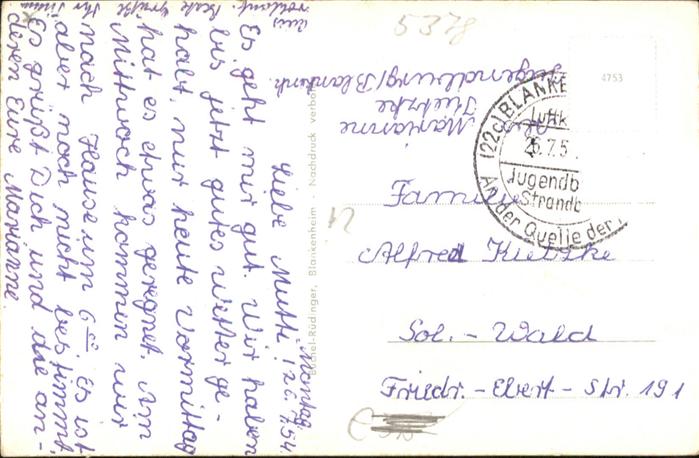 Montag, 26.7.54.
Liebe Mutti!
Es geht mir gut. Wir haben
bis jetzt gutes Wetter ge-
habt, nur heute Vormittag
hat es etwas geregnet. Am
Mittwoch kommen wir
nach Hause um 6⁰⁰. Es ist
aber noch nicht bestimmt.
Es grüßt Dich und die an-
deren Eure Marianne.
Büchel-Rüdinger, Blankenheim - Nachdruck verboten
5378
4753
Marianne
Kietzke
Jugendburg/Blankenh.
(22c) BLANKE
Luftk
26.7.5
Jugendb
Strandb
An der Quelle der
Familie
Alfred Kietzke
Sol.-Wald
Friedr.-Ebert-Str. 191